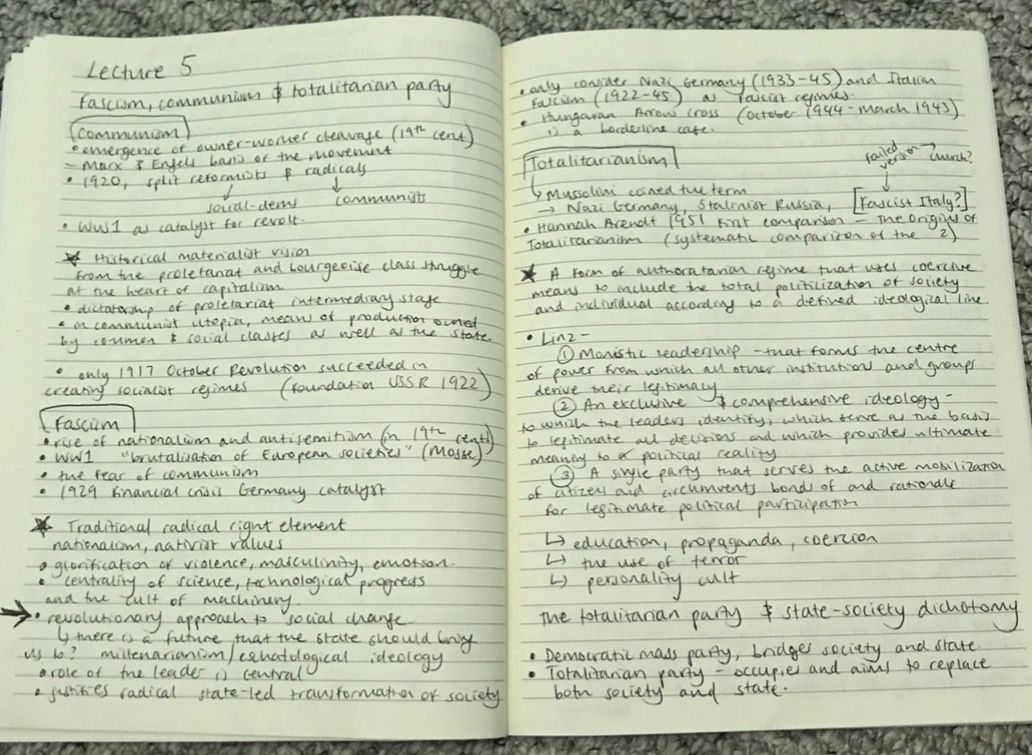 Lecture 5
Fascism, communism & totalitarian party
Communism
• emergence of owner-worker cleavage (19th cent)
- Marx & Engels basis of the movement
• 1920, split reformists & radicals
social-dems communists
• WW1 as catalyst for revolt.
★ Historical materialist vision
from the proletariat and bourgeoise class struggle
at the heart of capitalism
• dictatorship of proletariat intermediary stage
• in communist utopia, means of production owned
by common & social classes as well as the state.
• only 1917 October Revolution succeeded in
creating socialist regimes (foundation USSR 1922)
Fascism
• rise of nationalism and antisemitism (in 19th cent)
• WW1 "brutalisation of European societies" (Mosse)
• the fear of communism
• 1929 financial crisis Germany catalyst
★ Traditional radical right element
nationalism, nativist values
• glorification of violence, masculinity, emotion.
• centrality of science, technological progress
and the cult of machinery.
→ • revolutionary approach to social change
↳ there is a future that the state should bring
us to? millenarianism/eschatological ideology
• role of the leader is central
• justifies radical state-led transformation of society
• only consider Nazi Germany (1933-45) and Italian
Fascism (1922-45) as fascist regimes.
• Hungarian Arrow Cross (October 1944 - march 1945)
is a borderline case.
Totalitarianism
failed version → church?
↳ Mussolini coined the term
→ Nazi Germany, Stalinist Russia, [Fascist Italy?]
• Hannah Arendt 1951 first comparison - the origins of
Totalitarianism (systematic comparison of the 2)
★ A form of authoratarian regime that uses coercive
means to include the total politicization of society
and individual according to a defined ideological line.
• Linz -
① Monistic leadership - that forms the centre
of power from which all other institutions and groups
derive their legitimacy
② An exclusive & comprehensive ideology -
to which the leaders identify, which serve as the basis
to legitimate all decisions and which provides ultimate
meaning to a political reality
③ A single party that serves the active mobilization
of citizens and circumvents bonds of and rationale
for legitimate political participation
↳ education, propaganda, coercion
↳ the use of terror
↳ personality cult
The totalitarian party & state-society dichotomy
• Democratic mass party, bridges society and state.
• Totalitarian party - occupies and aims to replace
both society and state.